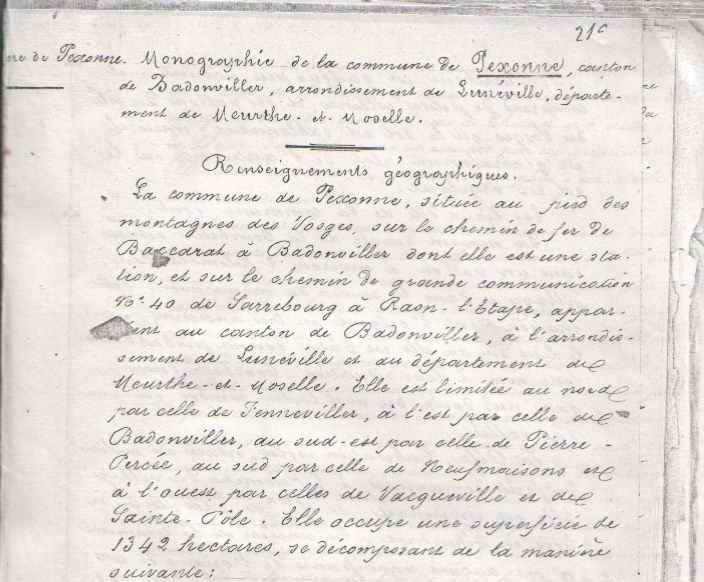 21c
ne de Pexonne. Monographie de la commune de Pexonne, canton
de Badonviller, arrondissement de Lunéville, départe-
ment de Meurthe-et-Moselle.
Renseignements géographiques.
La commune de Pexonne, située au pied des
montagnes des Vosges, sur le chemin de fer de
Baccarat à Badonviller dont elle est une sta-
tion, et sur le chemin de grande communication
No. 40 de Sarrebourg à Raon-l'Etape, appar-
tient au canton de Badonviller, à l'arrondis-
sement de Lunéville et au département de
Meurthe-et-Moselle. Elle est limitée au nord
par celle de Fenneviller, à l'est par celle de
Badonviller, au sud-est par celle de Pierre-
Percée, au sud par celle de Neufmaisons et
à l'ouest par celles de Vacqueville et de
Sainte-Pôle. Elle occupe une superficie de
1342 hectares, se décomposant de la manière
suivante: